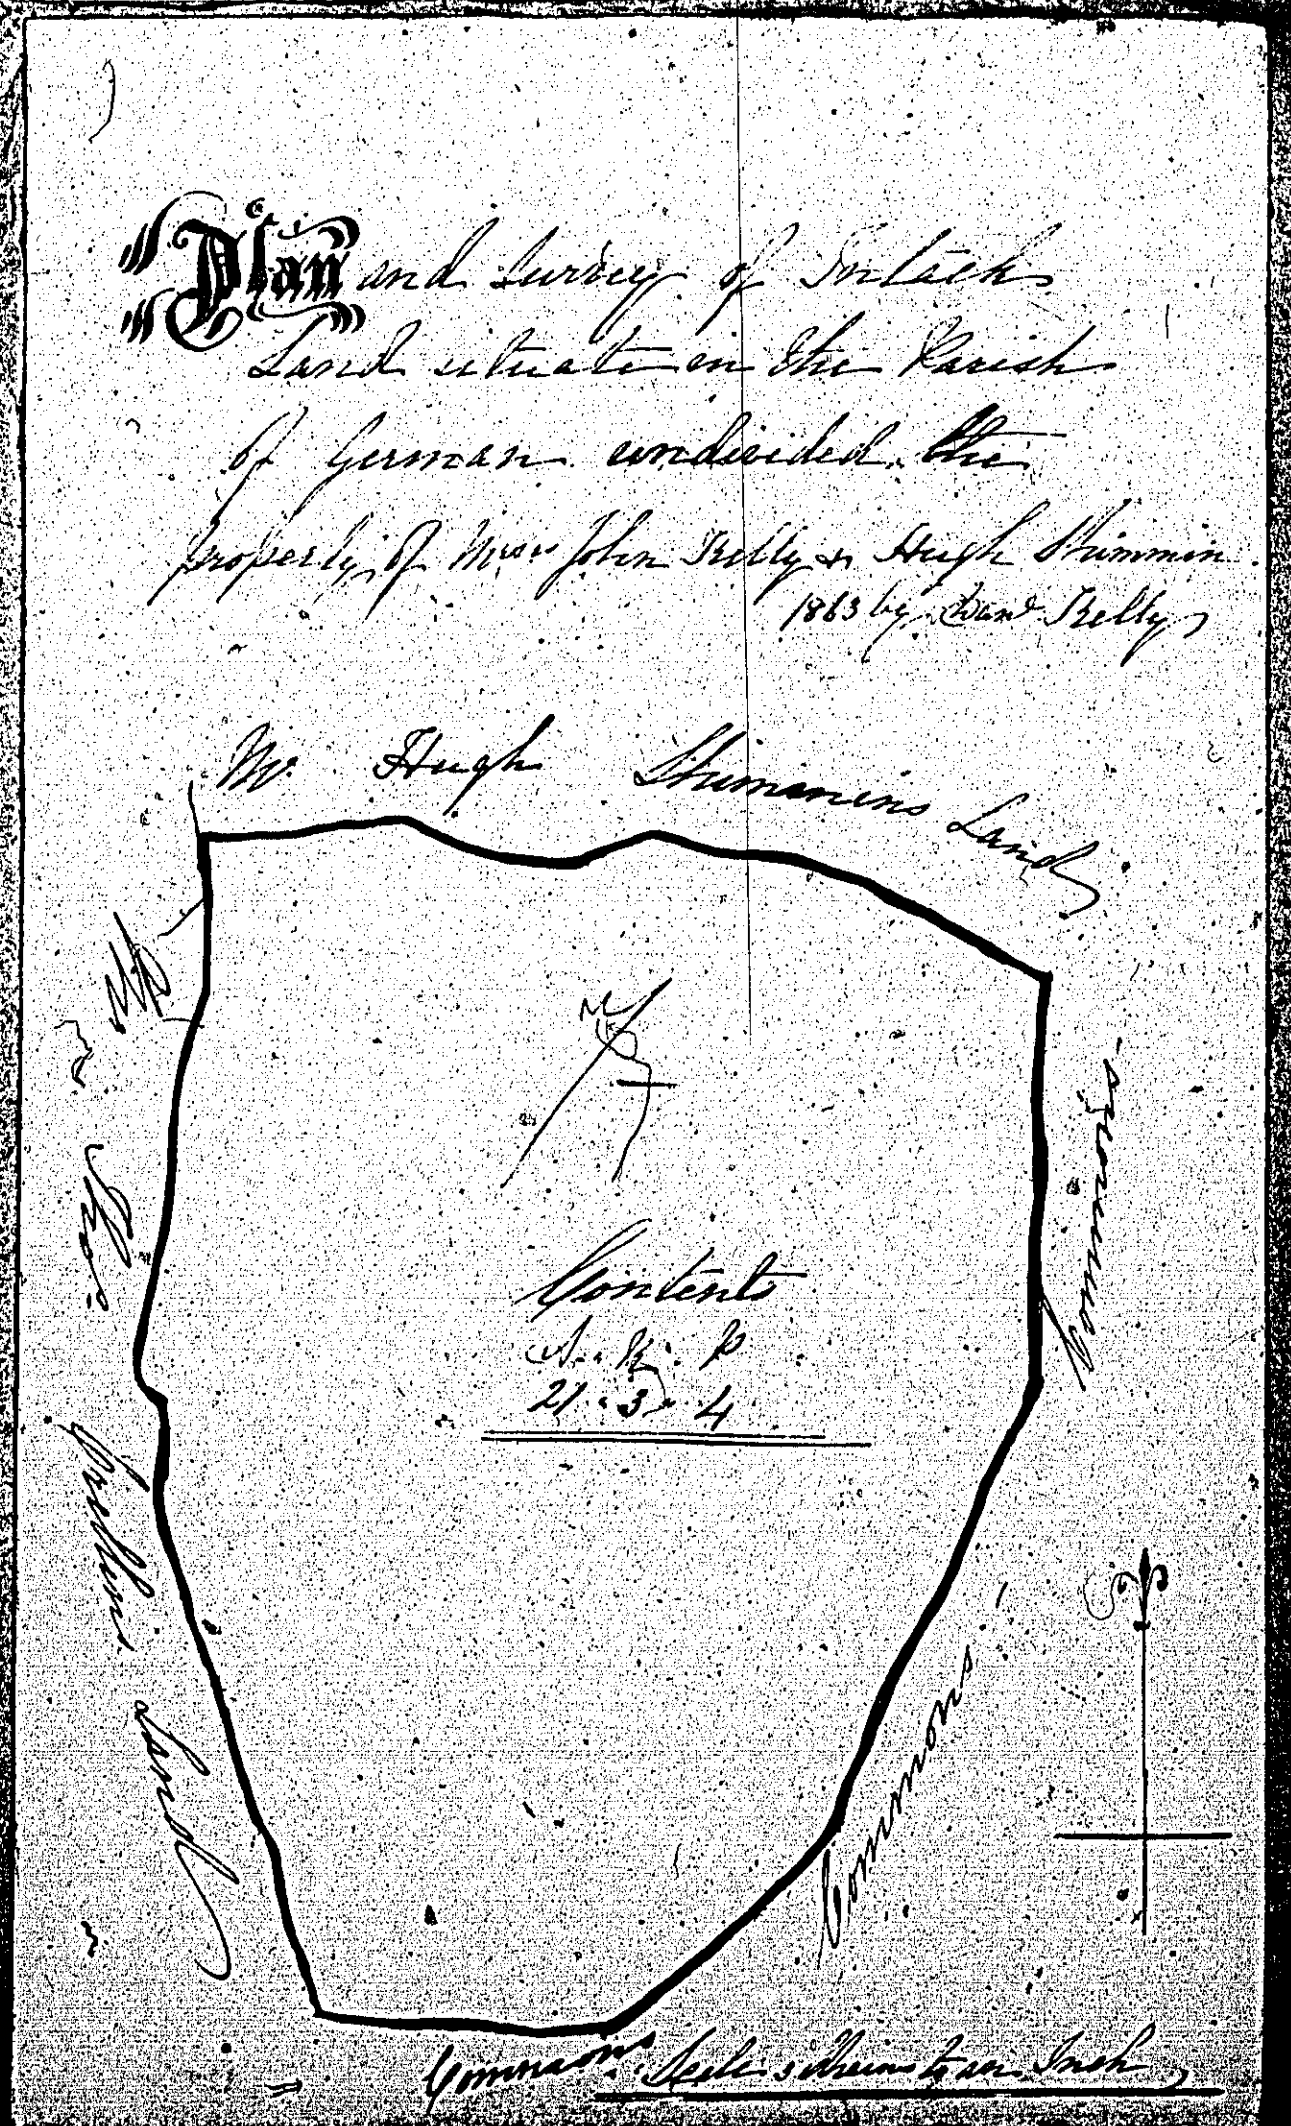 Plan and Survey of Intack
Land situate in the Parish
of German undivided the
property of Messrs John Kelly & Hugh Shimmin
1863 by Kelly
Mr. Hugh Shimmins Land
Mr Thos
Land
Commons
Contents
A. R. P
21. 3. 4
Commons
Commons Scale 3 chains to an Inch